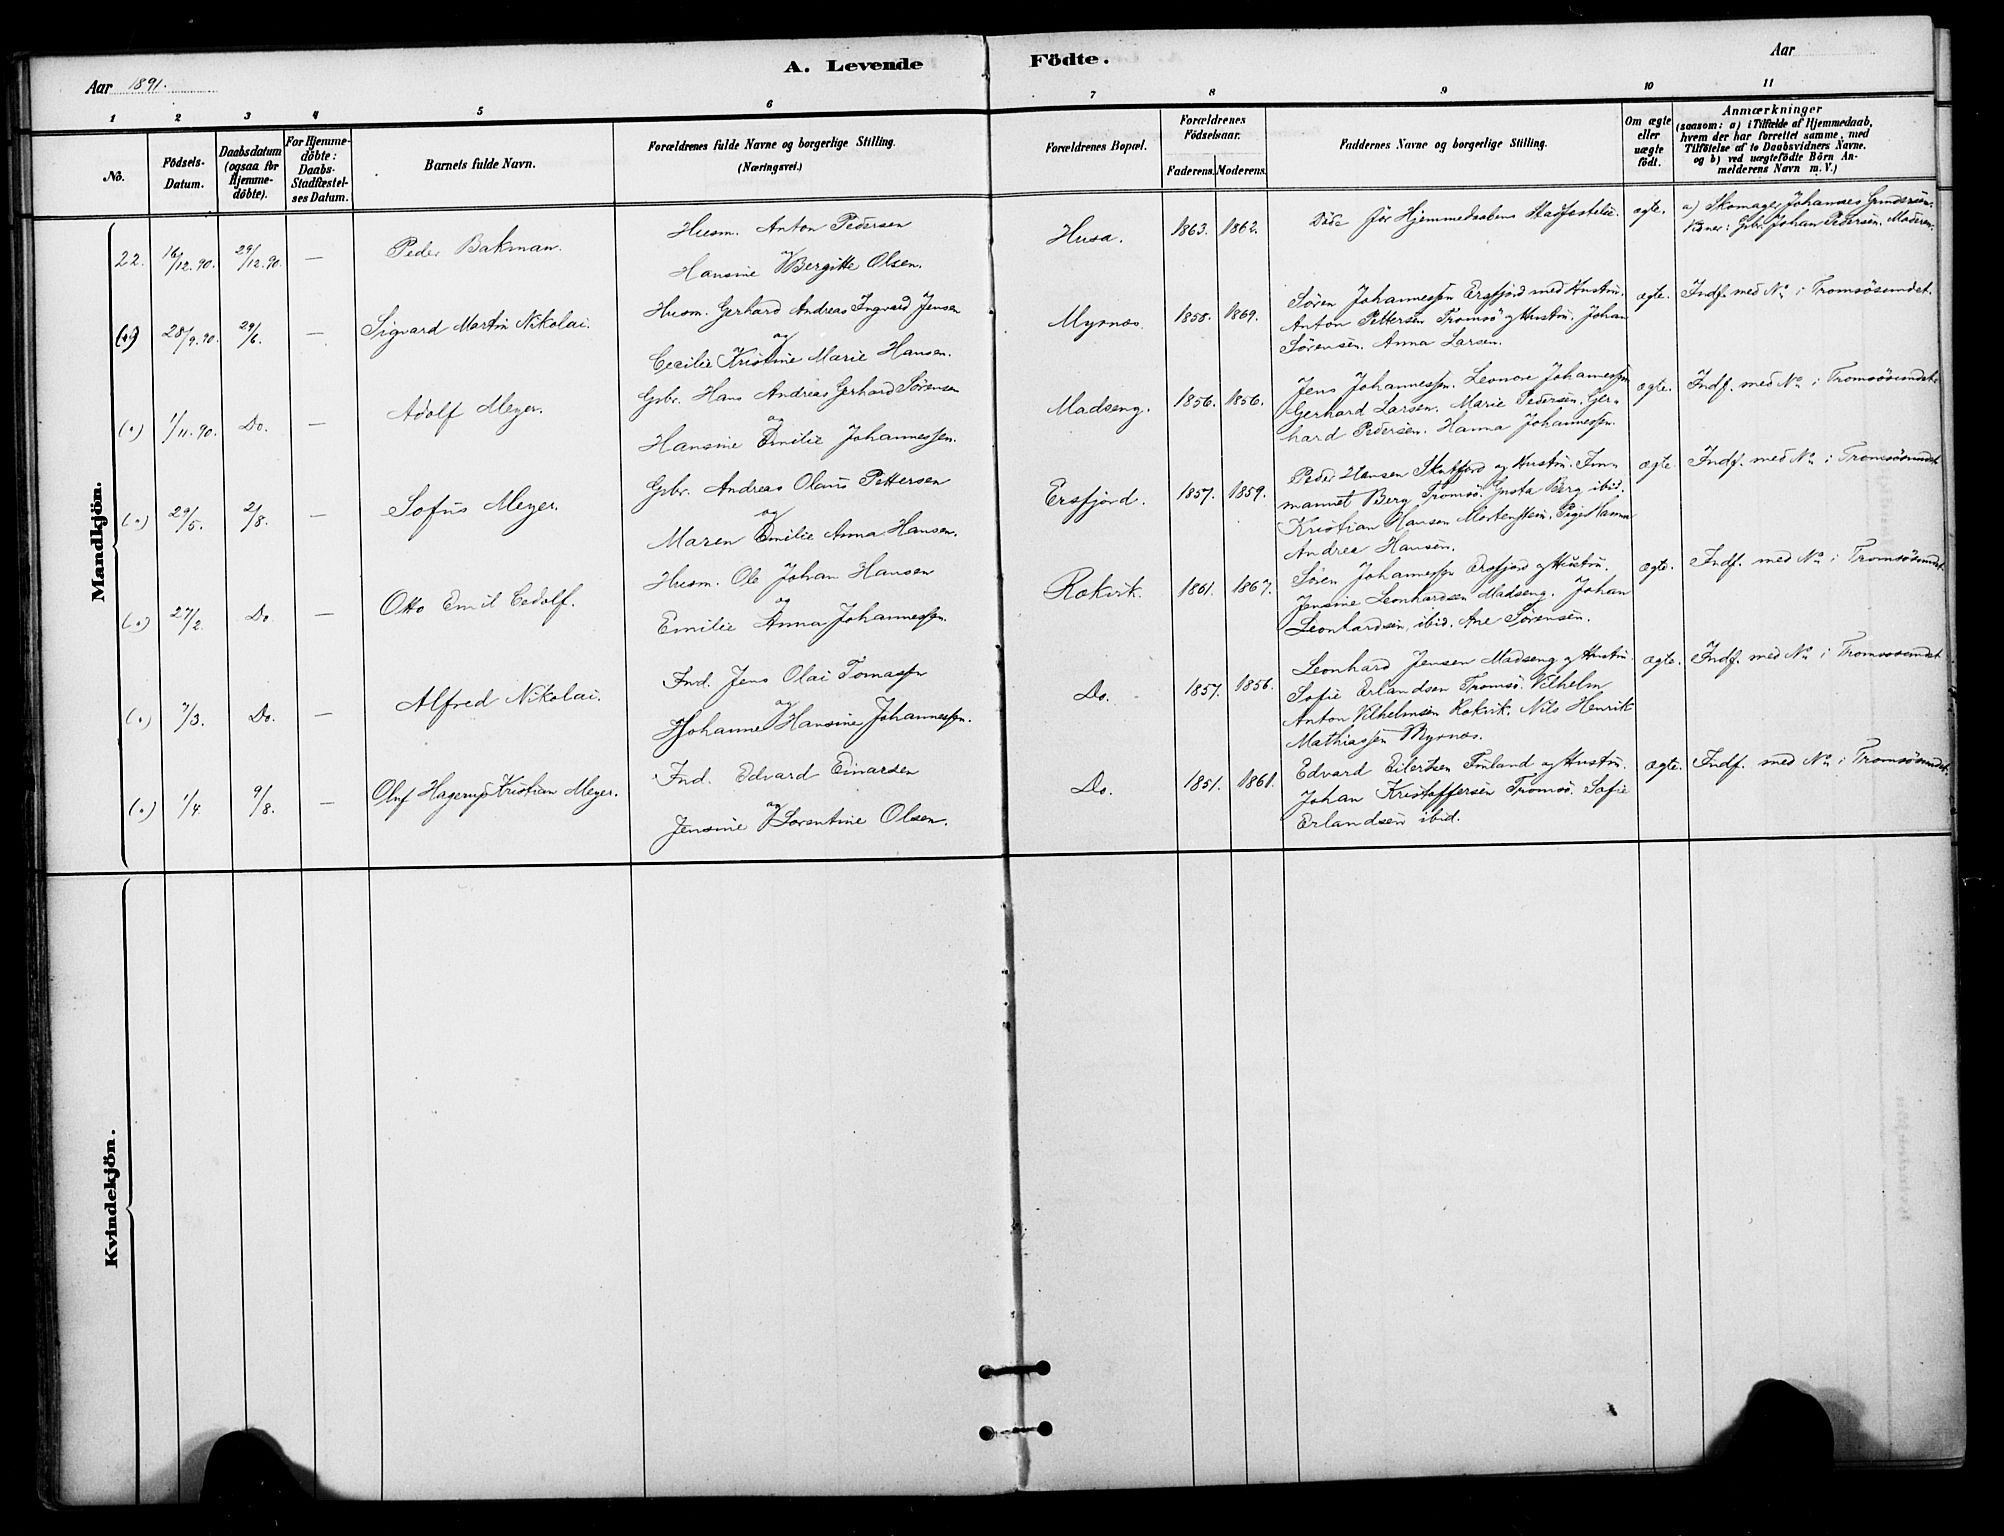 Aar 1891.
A. Levende Födte.
Aar
1 2 3 4 5 6 7 8 9 10 11
No.
Födsels-Datum.
Daabsdatum (ogsaa för Hjemme-döbte).
For Hjemme-döbte: Daabs-Stadfæstel-ses Datum.
Barnets fulde Navn.
Forældrenes fulde Navne og borgerlige Stilling.
(Næringsvei.)
Forældrenes Bopæl.
Forældrenes Födselsaar.
Faderens. Moderens.
Faddernes Navne og borgerlige Stilling.
Om ægte eller uægte födt.
Anmærkninger
(saasom: a) i Tilfælde af Hjemmedaab,
hvem der har forrettet samme, med
Tilföielse af to Daabsvidners Navne.
og b) ved uægtefödte Börn An-
melderens Navn m. V.)
Mandkjön.
22. 16/12.90. 29/12.90. — Peder Bakman.
Husm. Anton Pedersen
og
Hansine Bergitte Olsen.
Husa. 1863. 1862.
Döde för Hjemmedaabens Stadfæstelse.
ægte.
a) Skomager Johannes Gundersen.
Vidner: Gbr. Johan Pedersen. Moderen.
28/9.90. 29/6. — Sigvard Martin Nikolai.
Husm. Gerhard Andreas Ingvard Jensen
og
Cecilie Kristine Marie Hansen.
Myrnæs. 1858. 1869.
Sören Johannessen Ersfjord med Hustru.
Anton Pettersen Tromsö og Hustru. Johan
Sörensen. Anna Larsen.
ægte.
Indf. med No i Tromsösundet.
(0) 1/11.90. Do. — Adolf Meyer.
Gbr. Hans Andreas Gerhard Sörensen
og
Hansine Emilie Johannessen.
Madseng. 1856. 1856.
Jens Johannessen. Leonore Johannessen
Gerhard Larsen. Marie Pedersen. Ger-
hard Pedersen. Hanna Johannessen.
ægte.
Indf. med No i Tromsösundet.
(0) 29/5. 2/8. — Sofus Meyer.
Gbr. Andreas Olaus Pettersen
og
Maren Emilie Anna Hansen.
Ersfjord. 1857. 1859.
Peder Hansen og Hustru. Fin-
mannet Berg Tromsö. Gusta Berg ibid.
Kristian Hansen Mortenstein. Pige Hanna
Andrea Hansen.
ægte.
Indf. med No i Tromsösundet
(0) 27/2. Do — Otto Emil Cedolf.
Husm. Ole Johan Hansen
og
Emilie Anna Johannessen.
Rakvik. 1861. 1867.
Sören Johannessen Ersfjord og Hustru.
Jensine Leonhardsen Madseng. Johan
Leonhardsen, ibid. Ane Sörensen.
ægte.
Indf. med No i Tromsösundet
(0) 7/3. Do. — Alfred Nikolai.
Ind. Jens Olai Tomassen
og
Johanne Hansine Johannessen.
Do. 1857. 1856.
Leonhard Jensen Madseng og Hustru.
Sofie Erlandsen Tromsö. Vilhelm
Anton Vilhelmsen Rakvik. Nils Henrik
Mathiassen Myrnæs.
ægte.
Indf. med No i Tromsösundet
(0) 1/4. 9/8. — Oluf Hagerup Kristian Meyer.
Ind. Edvard Einarsen
og
Jensine Lorentine Olsen.
Do. 1851. 1861.
Edvard Eilertsen Finland og Hustru.
Johan Kristoffersen Tromsö. Sofie
Erlandsen ibid.
ægte.
Indf. med No i Tromsösundet.
Kvindekjön.